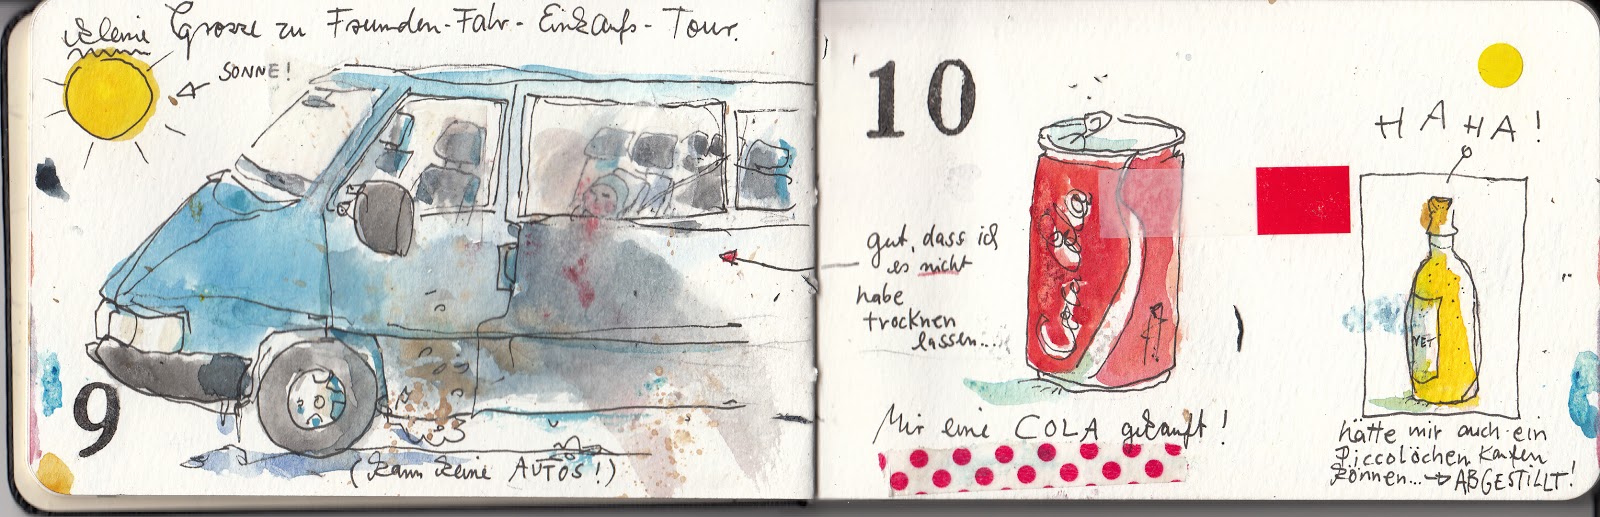 kleine Grosse zu Freunden-Fahr-Einkaufs-Tour.
SONNE!
9
(kann keine AUTOS!)
10
gut, dass ich
es nicht
habe
trocknen
lassen...
Coca Cola
Mir eine COLA gekauft!
HAHA!
hätte mir auch ein
Piccolöchen kaufen
können... → ABGESTILLT!